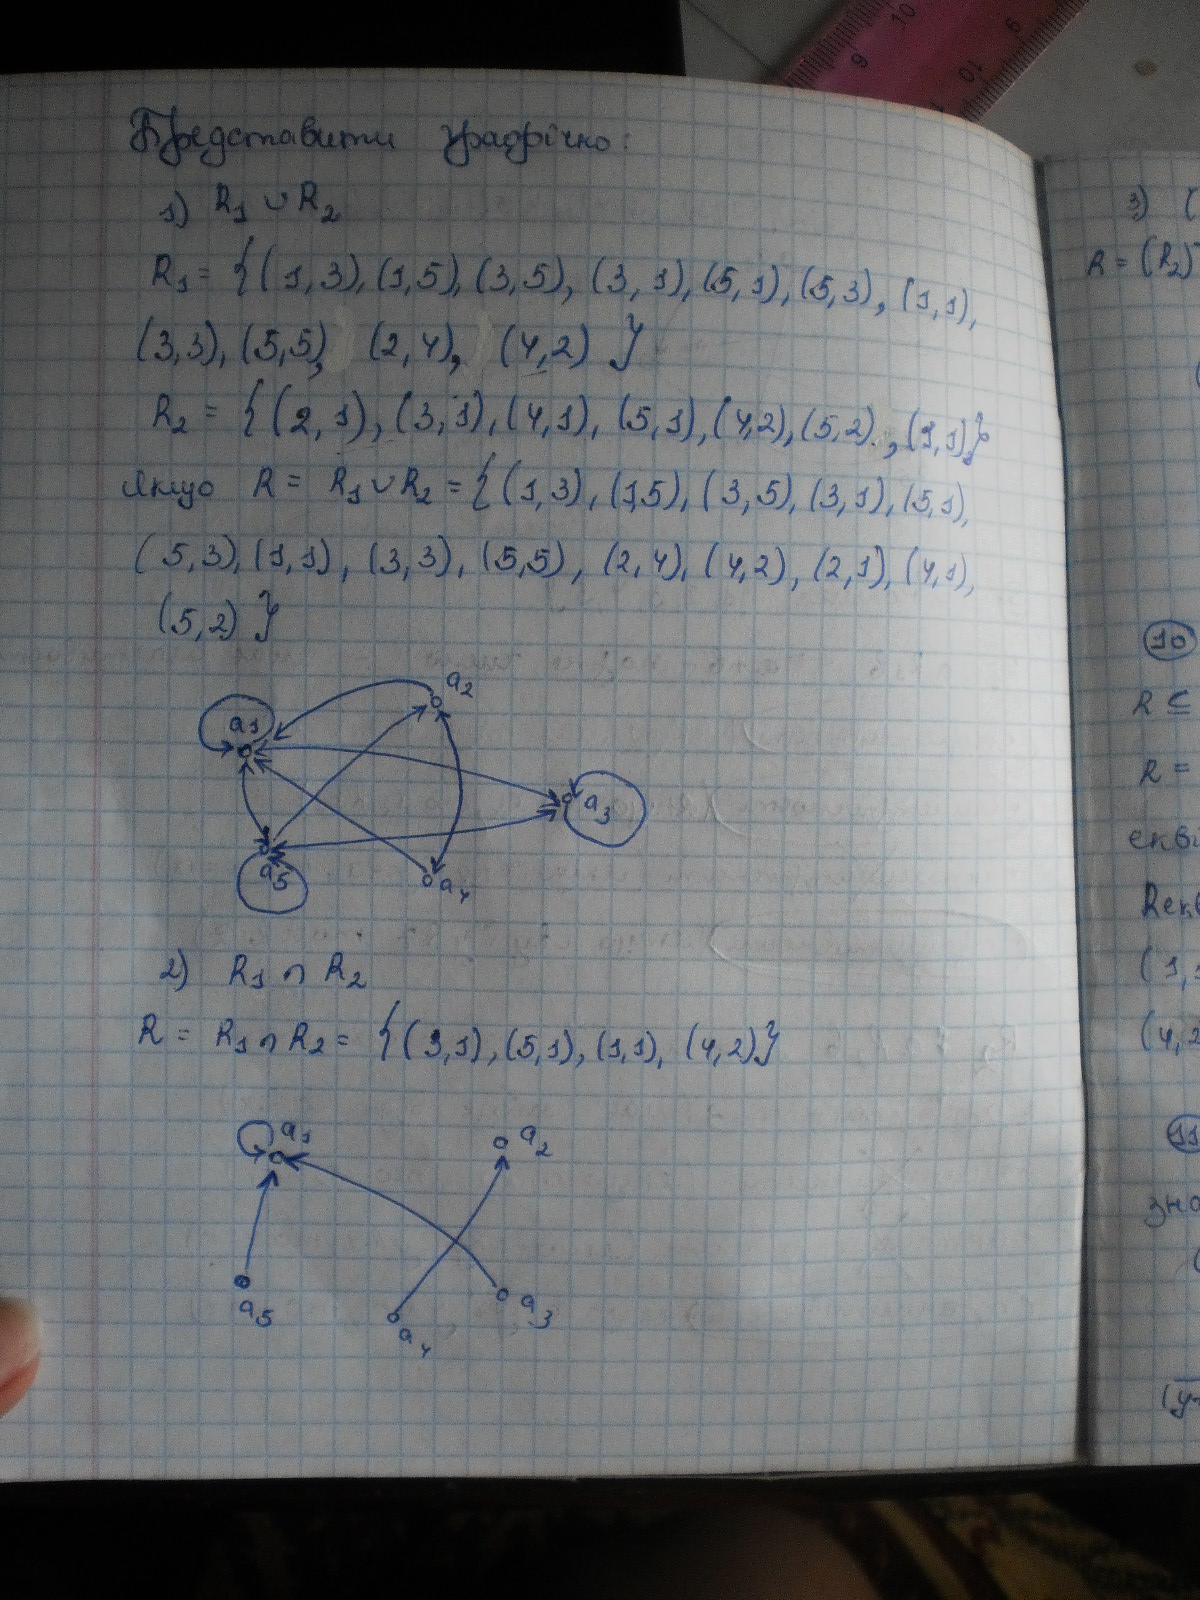 Представити графічно:
1) R₁ ∪ R₂
R₁ = {(1,3), (1,5), (3,5), (3,1), (5,1), (5,3), (1,1),
(3,3), (5,5), (2,4), (4,2) }
R₂ = {(2,1), (3,1), (4,1), (5,1), (4,2), (5,2), (1,1)}
якщо R = R₁ ∪ R₂ = {(1,3), (1,5), (3,5), (3,1), (5,1),
(5,3), (1,1), (3,3), (5,5), (2,4), (4,2), (2,1), (4,1),
(5,2) }
a₂
a₁
a₃
a₅
a₄
2) R₁ ∩ R₂
R = R₁ ∩ R₂ = {(3,1), (5,1), (1,1), (4,2)}
a₁
a₂
a₅
a₃
a₄
3) (
R = (R₂)
10
R ⊆
R =
(1,
(4,2
11
10
9
10
9